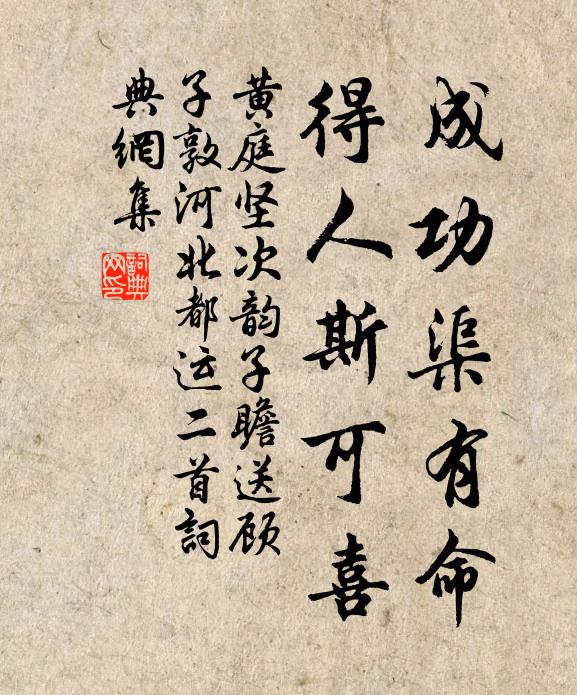 成功渠有命
得人斯可喜
黄庭坚次韵子瞻送顾
子敦河北都运二首詞
典網集
詞典
网印